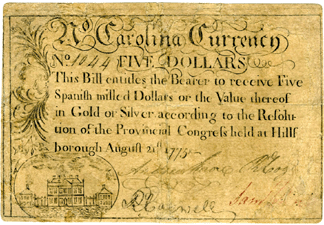 No Carolina Currency
No. 1044 FIVE DOLLARS
This Bill entitles the Bearer to receive Five
Spanish milled Dollars or the Value thereof
in Gold or Silver according to the Resolu-
tion of the Provincial Congress held at Hills
borough August 21st 1775